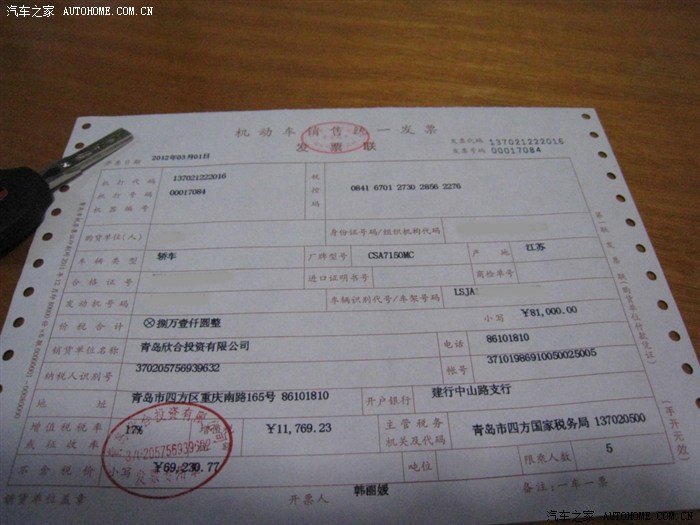 汽车之家 AUTOHOME.COM.CN
机动车销售统一发票
发票联
发票代码 137021222016
发票号码 00017084
开票日期 2012年03月01日
机打代码 137021222016
机打号码 00017084
机器编号
税控码 0841 6701 2730 2856 2276
购货单位(人) 身份证号码/组织机构代码
车辆类型 轿车 厂牌型号 CSA7150MC 产地 江苏
合格证号 进口证明书号 商检单号
发动机号码 车辆识别代号/车架号码 LSJA
价税合计 ⊗捌万壹仟圆整 小写 ¥81,000.00
销货单位名称 青岛欣合投资有限公司 电话 86101810
纳税人识别号 370205756939632 帐号 37101986910050025005
地址 青岛市四方区重庆南路165号 86101810 开户银行 建行中山路支行
增值税税率或征收率 17% 增值税税额 ¥11,769.23 主管税务机关及代码 青岛市四方国家税务局 137020500
不含税价 小写 ¥69,230.77 吨位 限乘人数 5
销货单位盖章 开票人 韩丽媛 备注:一车一票
第一联 发票联(购货单位付款凭证)
(手开无效)
汽车之家 AUTOHOME.COM.CN